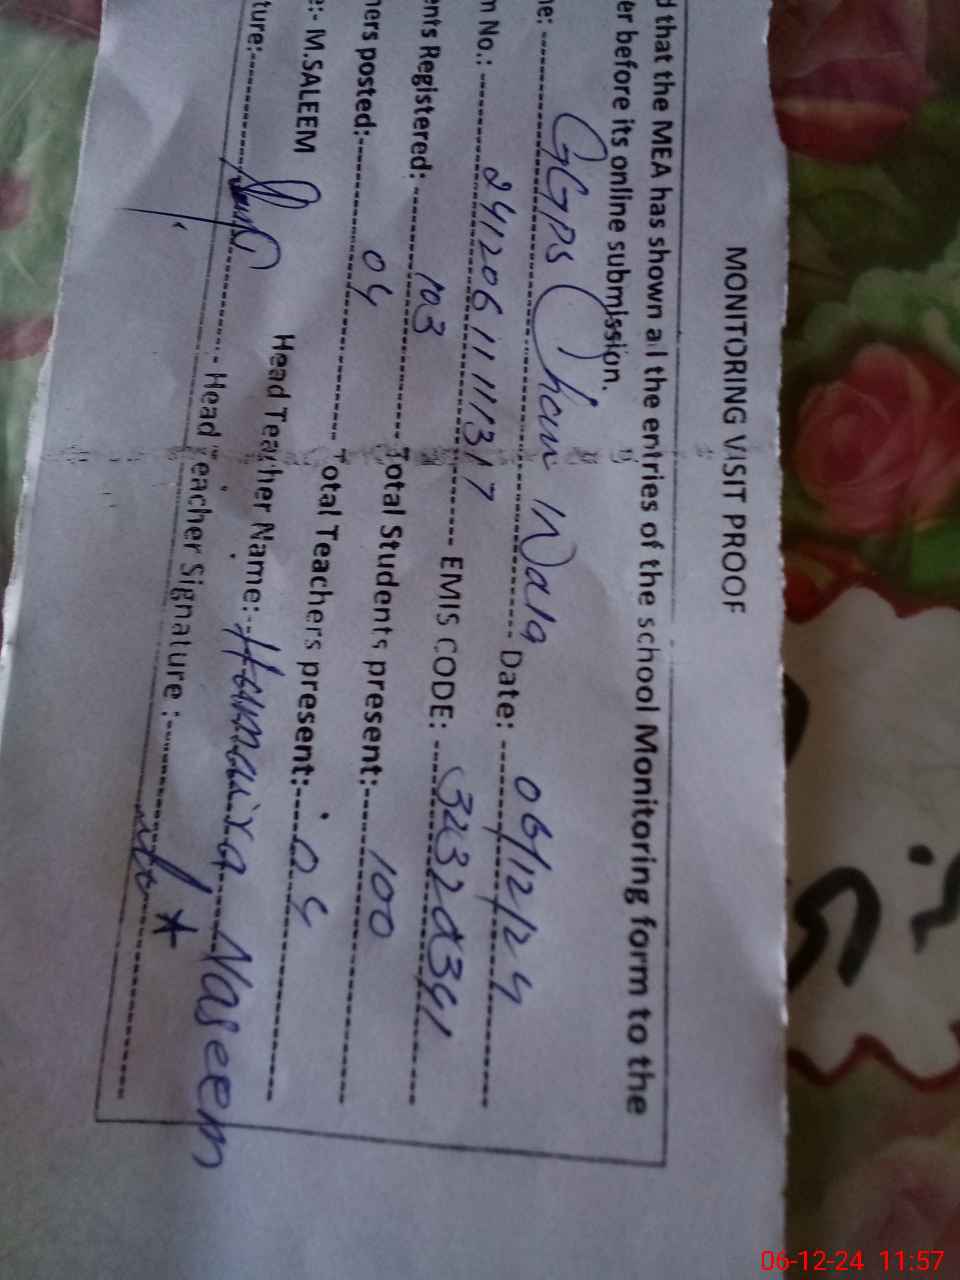 MONITORING VISIT PROOF
d that the MEA has shown all the entries of the school Monitoring form to the
er before its online submission.
e: GGPS Chan Wala Date: 06/12/24
n No.: 241206111131 7 EMIS CODE:
ents Registered: 103 Total Students present: 100
ners posted: 04 Total Teachers present: 04
e:- M.SALEEM Head Teacher Name: Humaira Naseem
ture: Head Teacher Signature :
06-12-24 11:57